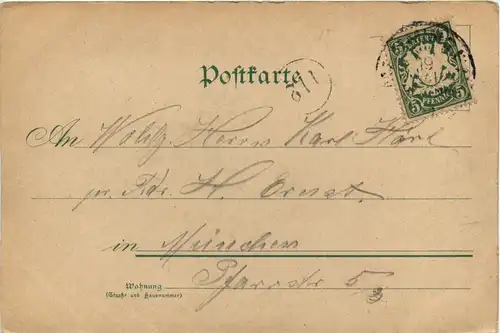 Postkarte
5 5
5 PFENNIG 5
An Herrn Karl
pr. Adr. H. Ernst
in München
Wohnung Pfarrstr 5
(Straße und Hausnummer) 3